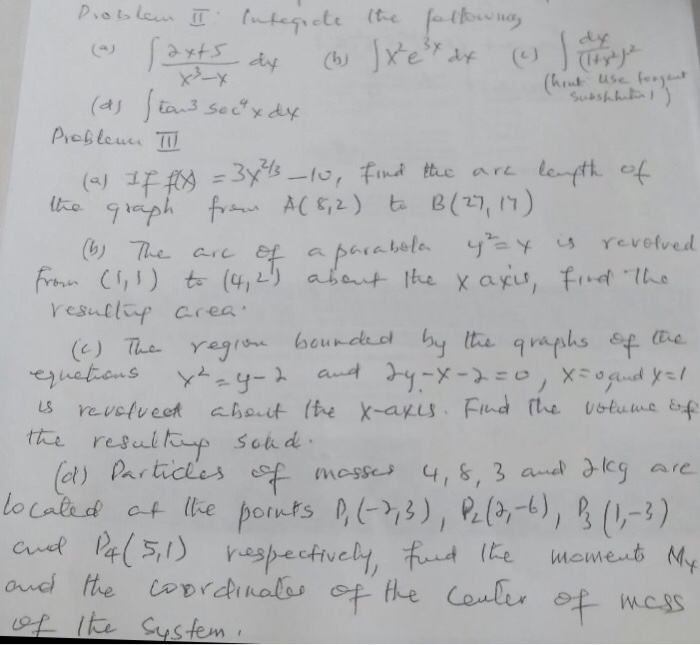 Problem II: Integrate the following
(a) ∫ (2x+5)/(x³-x) dx (b) ∫x²e^{3x} dx (c) ∫ dx/(1+x²)²
(hint use tangent
substitution)
(d) ∫ tan³ sec⁴x dx
Problem III
(a) If f(x) = 3x^{2/3} -10, find the arc length of
the graph from A(8,2) to B(27,17)
(b) The arc of a parabola y²=x is revolved
from (1,1) to (4,2) about the x axis, find the
resulting area.
(c) The region bounded by the graphs of the
equations x²=y-2 and 2y-x-2=0, x=0, and x=1
is revolved about the x-axis. Find the volume of
the resulting solid.
(d) Particles of masses 4, 8, 3 and 2kg are
located at the points P₁(-2,3), P₂(2,-6), P₃(1,-3)
and P₄(5,1) respectively, find the moment Mx
and the coordinates of the center of mass
of the system.